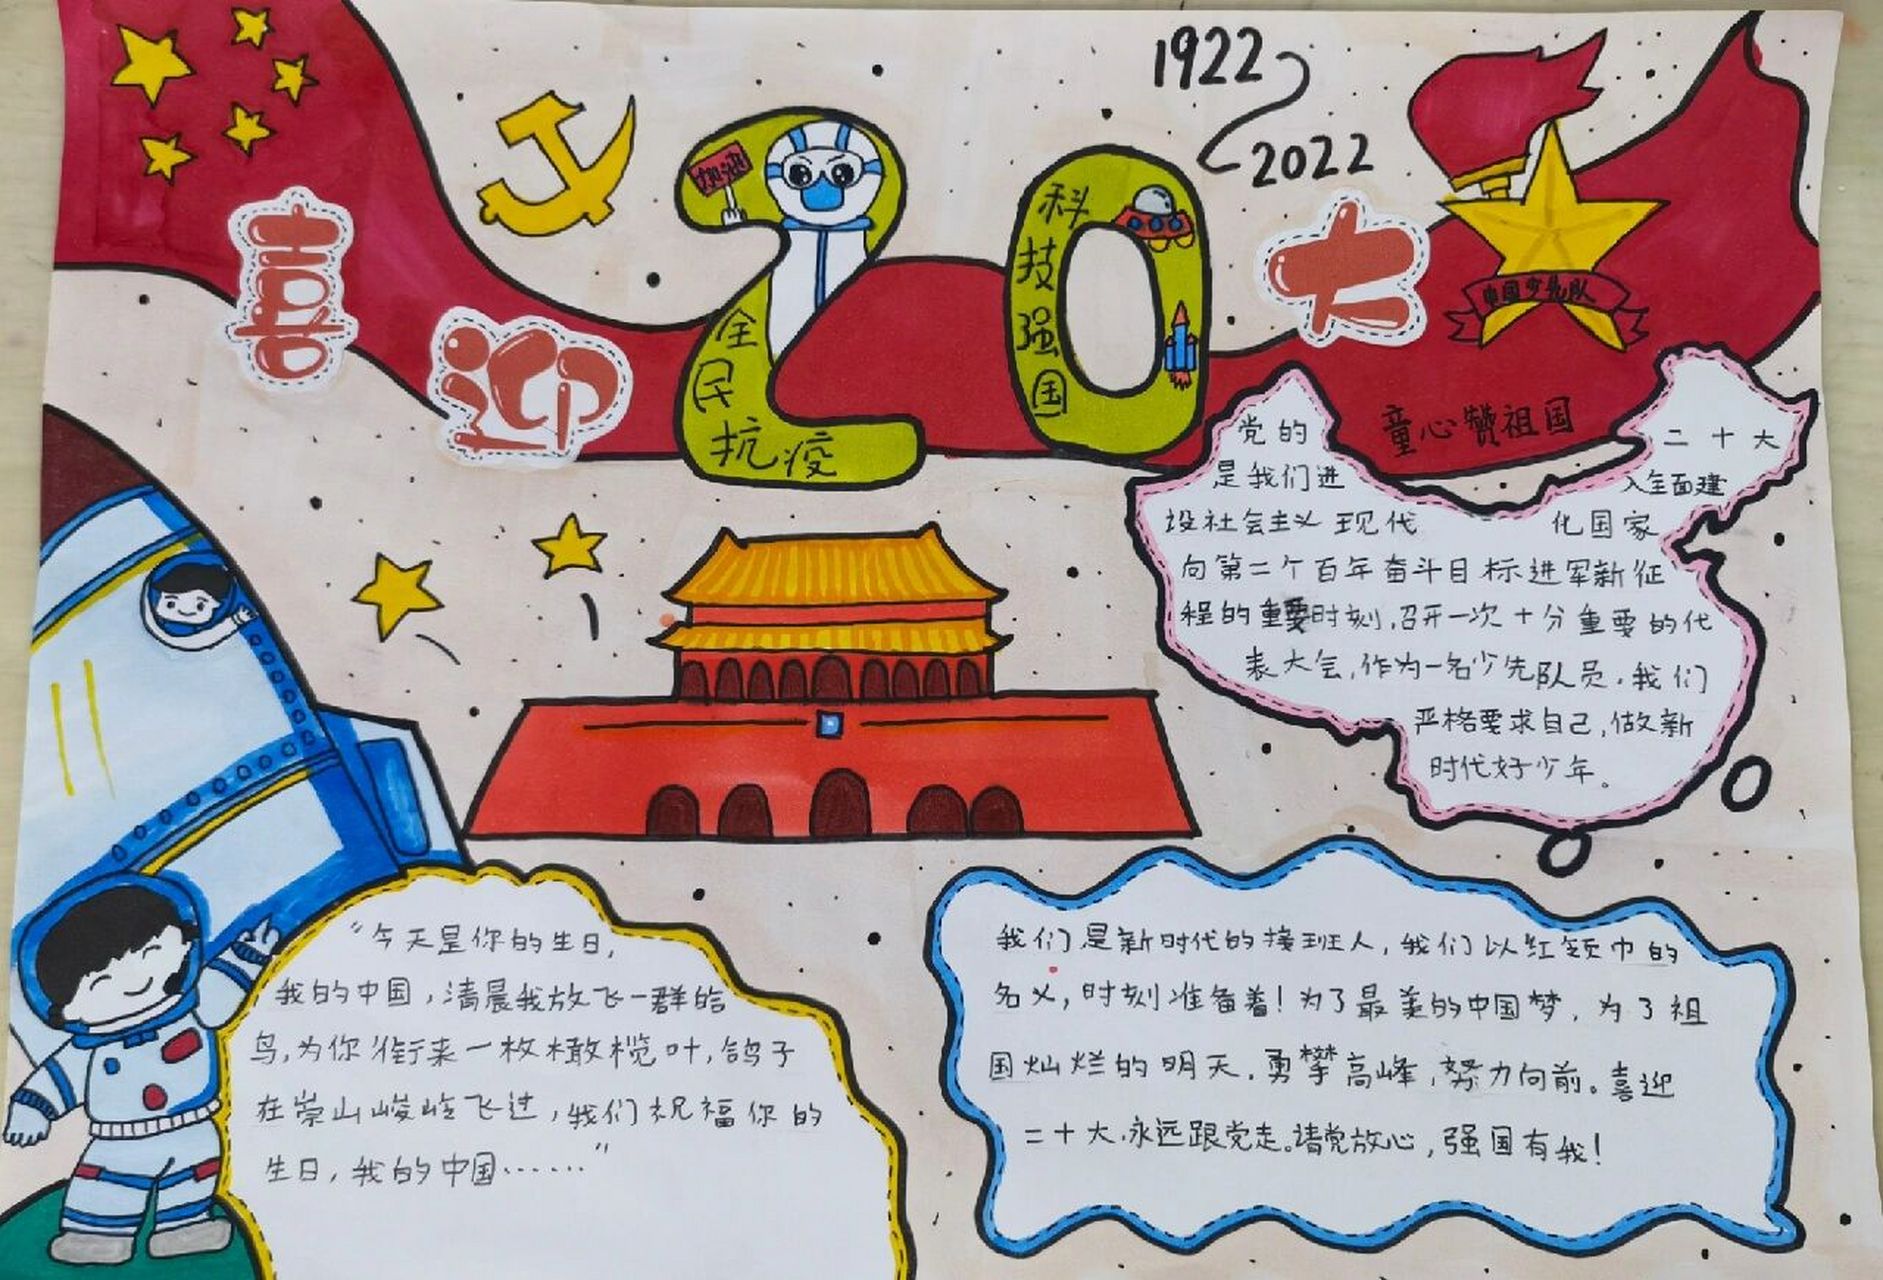 1922
2022
喜迎20大
加油
全民抗疫
科技强国
中国少先队
童心赞祖国
党的 二十大
是我们进 入全面建
设社会主义现代 化国家
向第二个百年奋斗目标进军新征
程的重要时刻,召开一次十分重要的代
表大会,作为一名少先队员,我们
严格要求自己,做新
时代好少年。
“今天是你的生日,
我的中国,清晨我放飞一群白鸽
鸟,为你衔来一枚橄榄叶,鸽子
在崇山峻岭飞过,我们祝福你的
生日,我的中国……”
我们是新时代的接班人,我们以红领巾的
名义,时刻准备着!为了最美的中国梦,为了祖
国灿烂的明天,勇攀高峰,努力向前。喜迎
二十大,永远跟党走。请党放心,强国有我!